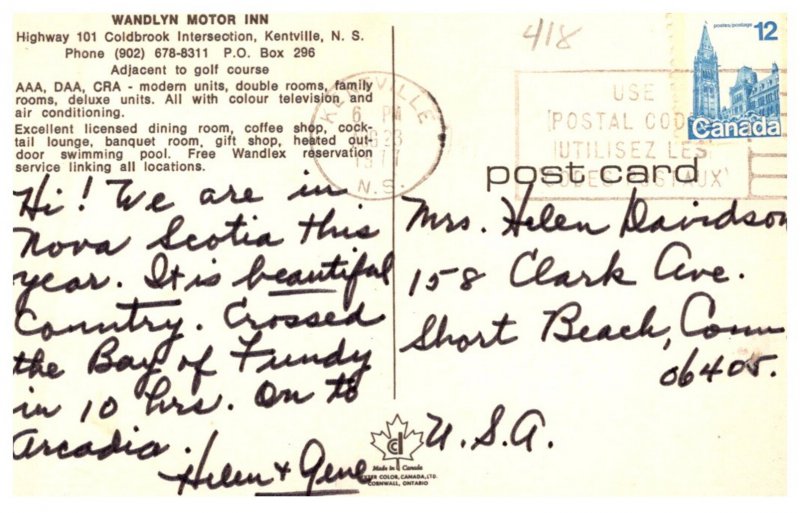 WANDLYN MOTOR INN
Highway 101 Coldbrook Intersection, Kentville, N. S.
Phone (902) 678-8311 P.O. Box 296
Adjacent to golf course
AAA, DAA, CRA - modern units, double rooms, family
rooms, deluxe units. All with colour television and
air conditioning.
Excellent licensed dining room, coffee shop, cock-
tail lounge, banquet room, gift shop, heated out-
door swimming pool. Free Wandlex reservation
service linking all locations.
Hi! We are in
Nova Scotia this
year. It is beautiful
Country. Crossed
the Bay of Fundy
in 10 hrs. On to
Arcadia.
Helen & Gene
418
KENTVILLE
6 PM
23
1977
N.S.
USE
POSTAL CODES
UTILISEZ LES
CODES POSTAUX
postes/postage 12
Canada
post card
Mrs. Helen Davidson
158 Clark Ave.
Short Beach, Conn
06405.
U.S.A.
Made in Canada
COLOR, CANADA, LTD.
CORNWALL, ONTARIO